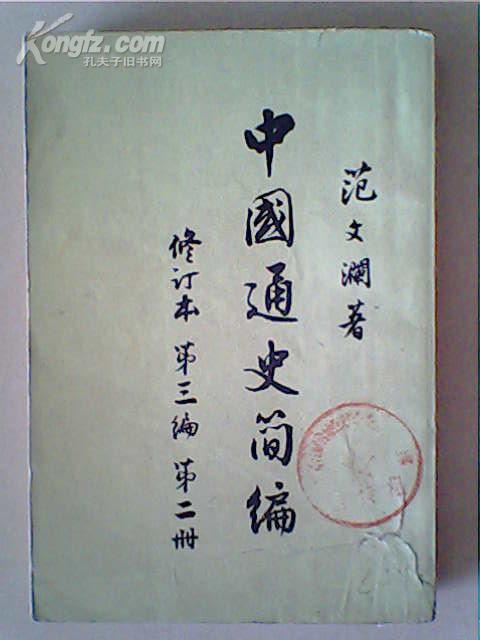 Kongfz.com
孔夫子旧书网
范文瀾著
中國通史简编
修订本 第三编 第二册